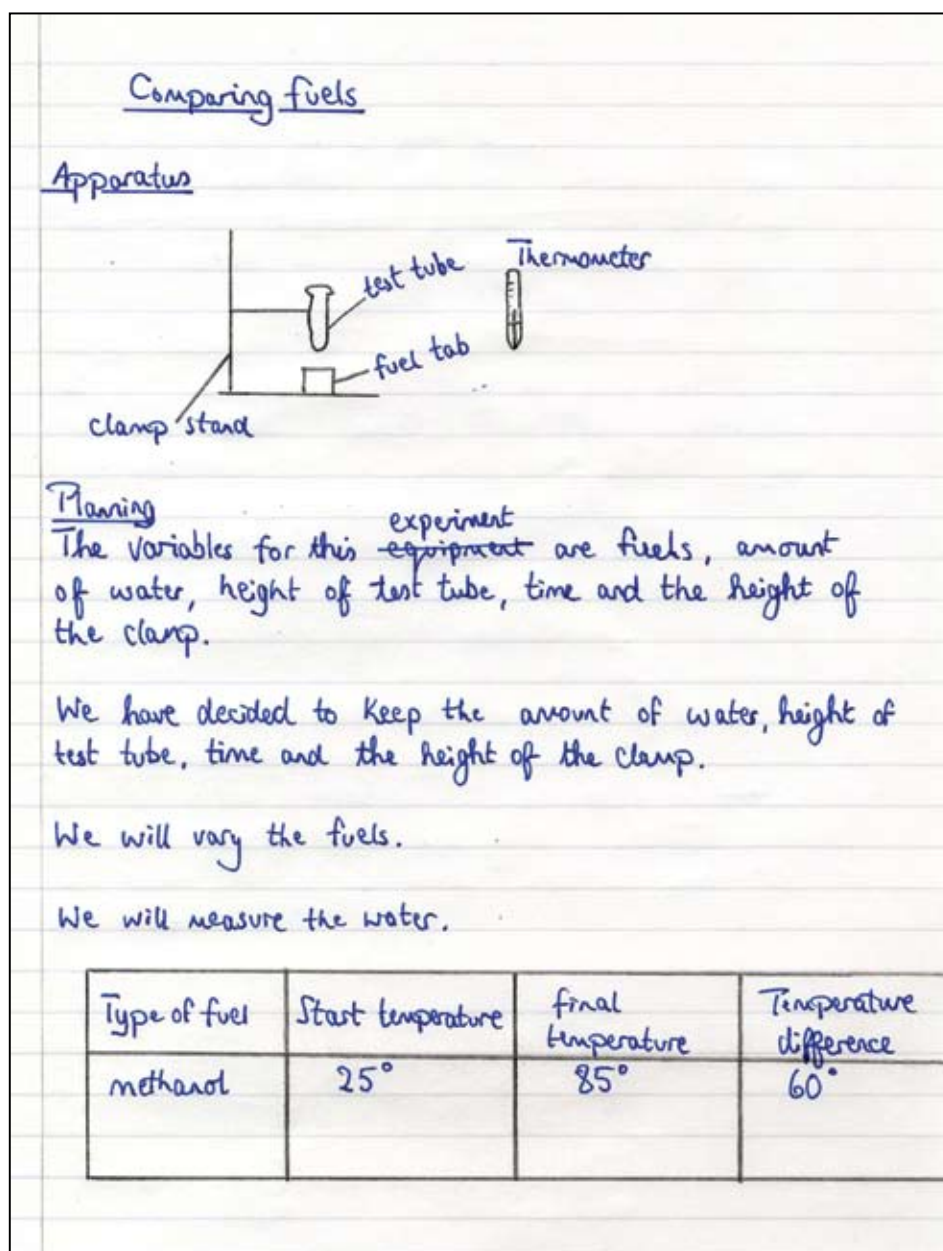 Comparing fuels
Apparatus
test tube
Thermometer
fuel tab
clamp stand
Planning
experiment
The variables for this equipment are fuels, amount
of water, height of test tube, time and the height of
the clamp.
We have decided to keep the amount of water, height of
test tube, time and the height of the clamp.
We will vary the fuels.
We will measure the water.
Type of fuel Start temperature final temperature Temperature difference
methanol 25° 85° 60°